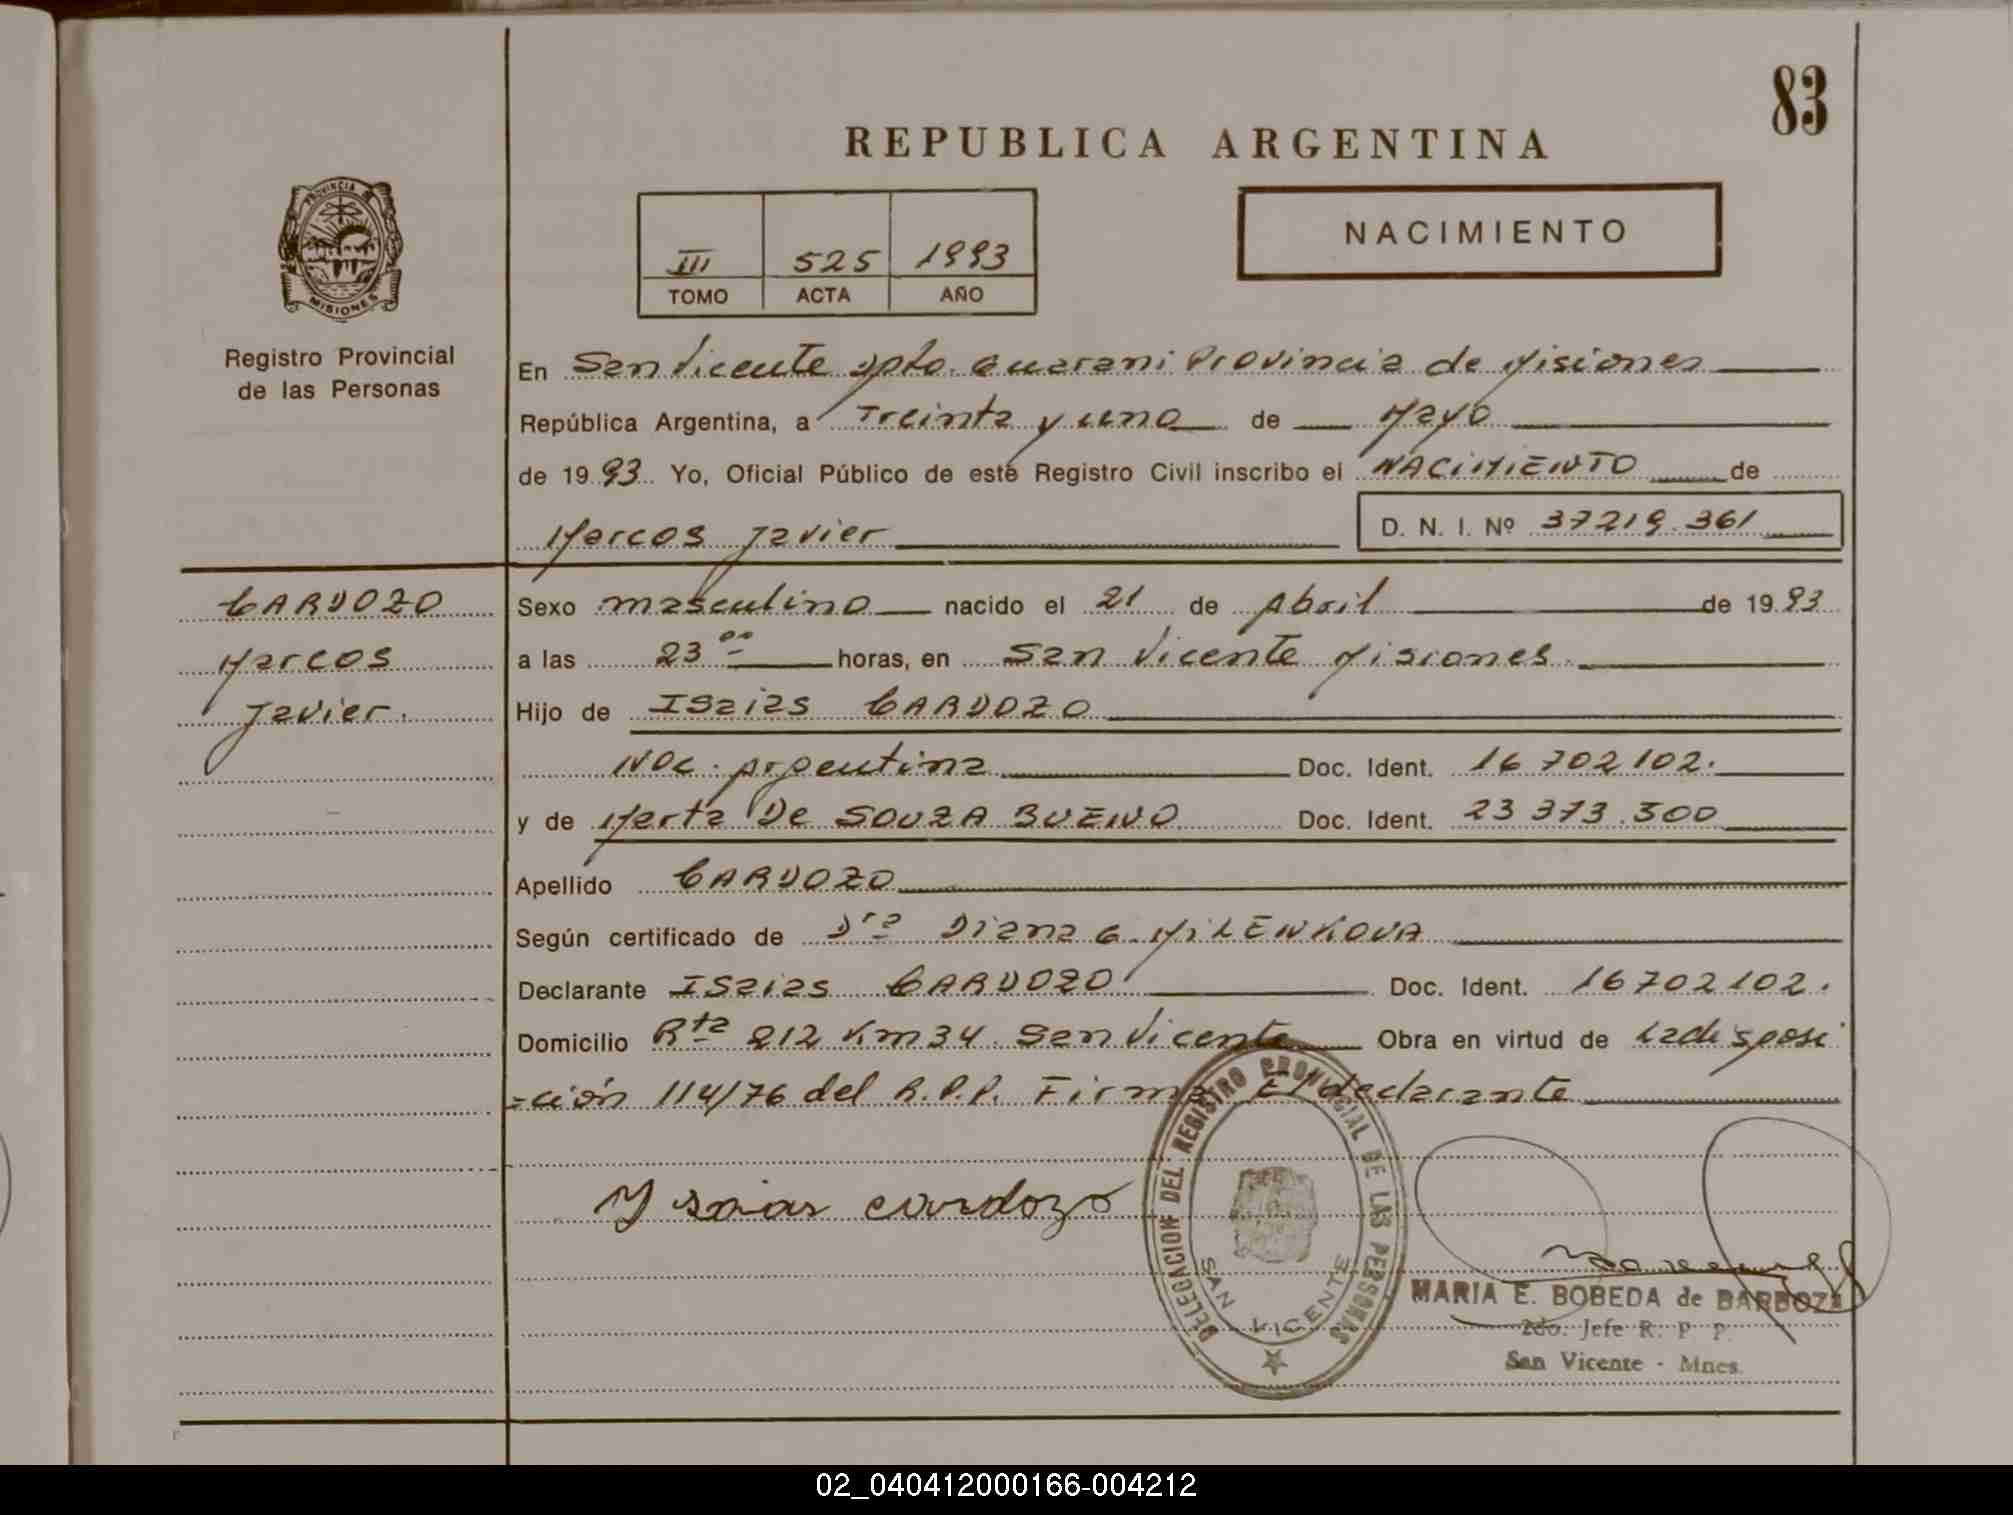 83
REPUBLICA ARGENTINA
PROVINCIA DE
MISIONES
Registro Provincial
de las Personas
III 525 1993
TOMO ACTA AÑO
NACIMIENTO
En San Vicente Dpto. Guarani Provincia de Misiones
República Argentina, a Treinta y uno de Mayo
de 1993 Yo, Oficial Público de este Registro Civil inscribo el NACIMIENTO de
Marcos Javier D. N. I. Nº 37219.361
CARDOZO
Marcos
Javier.
Sexo masculino nacido el 21 de Abril de 1993
a las 23 00 horas, en San Vicente Misiones.
Hijo de Isaias CARDOZO
Nac. Argentina Doc. Ident. 16 702 102.
y de Marta De SOUZA BUENO Doc. Ident. 23 373.300
Apellido CARDOZO
Según certificado de Dra Diana G. MILENKOVA
Declarante Isaias CARDOZO Doc. Ident. 16702102.
Domicilio Rta 212 Km 34. San Vicente Obra en virtud de la disposi
=ción 114/76 del R.P.P. Firma El declarante
Ysaias cardozo
DELEGACION DEL REGISTRO PROVINCIAL DE LAS PERSONAS
SAN VICENTE
MARIA E. BOBEDA de BARBOZA
2do. Jefe R. P. P.
San Vicente - Mnes.
02_040412000166-004212